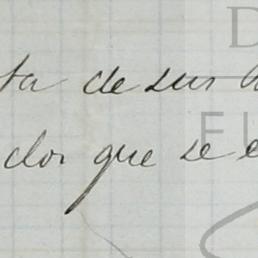 ta de sus
dos que se e